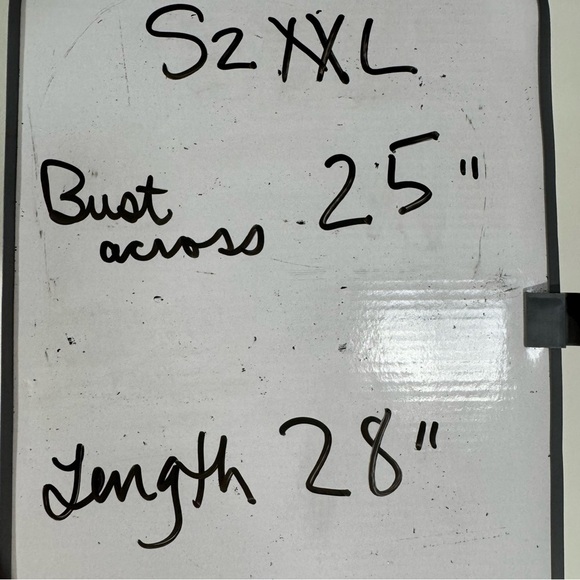 Sz XXL
Bust 25"
across
Length 28"